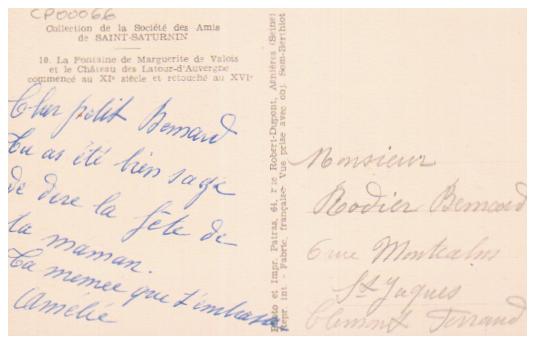 CP00066
Collection de la Société des Amis
de SAINT-SATURNIN
10. La Fontaine de Marguerite de Valois
et le Château des Latour-d'Auvergne
commencé au XIe siècle et retouché au XVIe
Cher petit Bernard
Tu as été bien sage
de dire la fête de
ta maman.
Ta memée que t'embrasse
Amélie
Photo et Impr. Patras, 64, rue Robert-Dupont, Asnières (Seine)
Repr. int. - Fabric. française - Vue prise avec obj. Som-Berthiot
Monsieur
Rodier Bernard
6 rue Montcalm
St Jaques
Clermont Ferrand